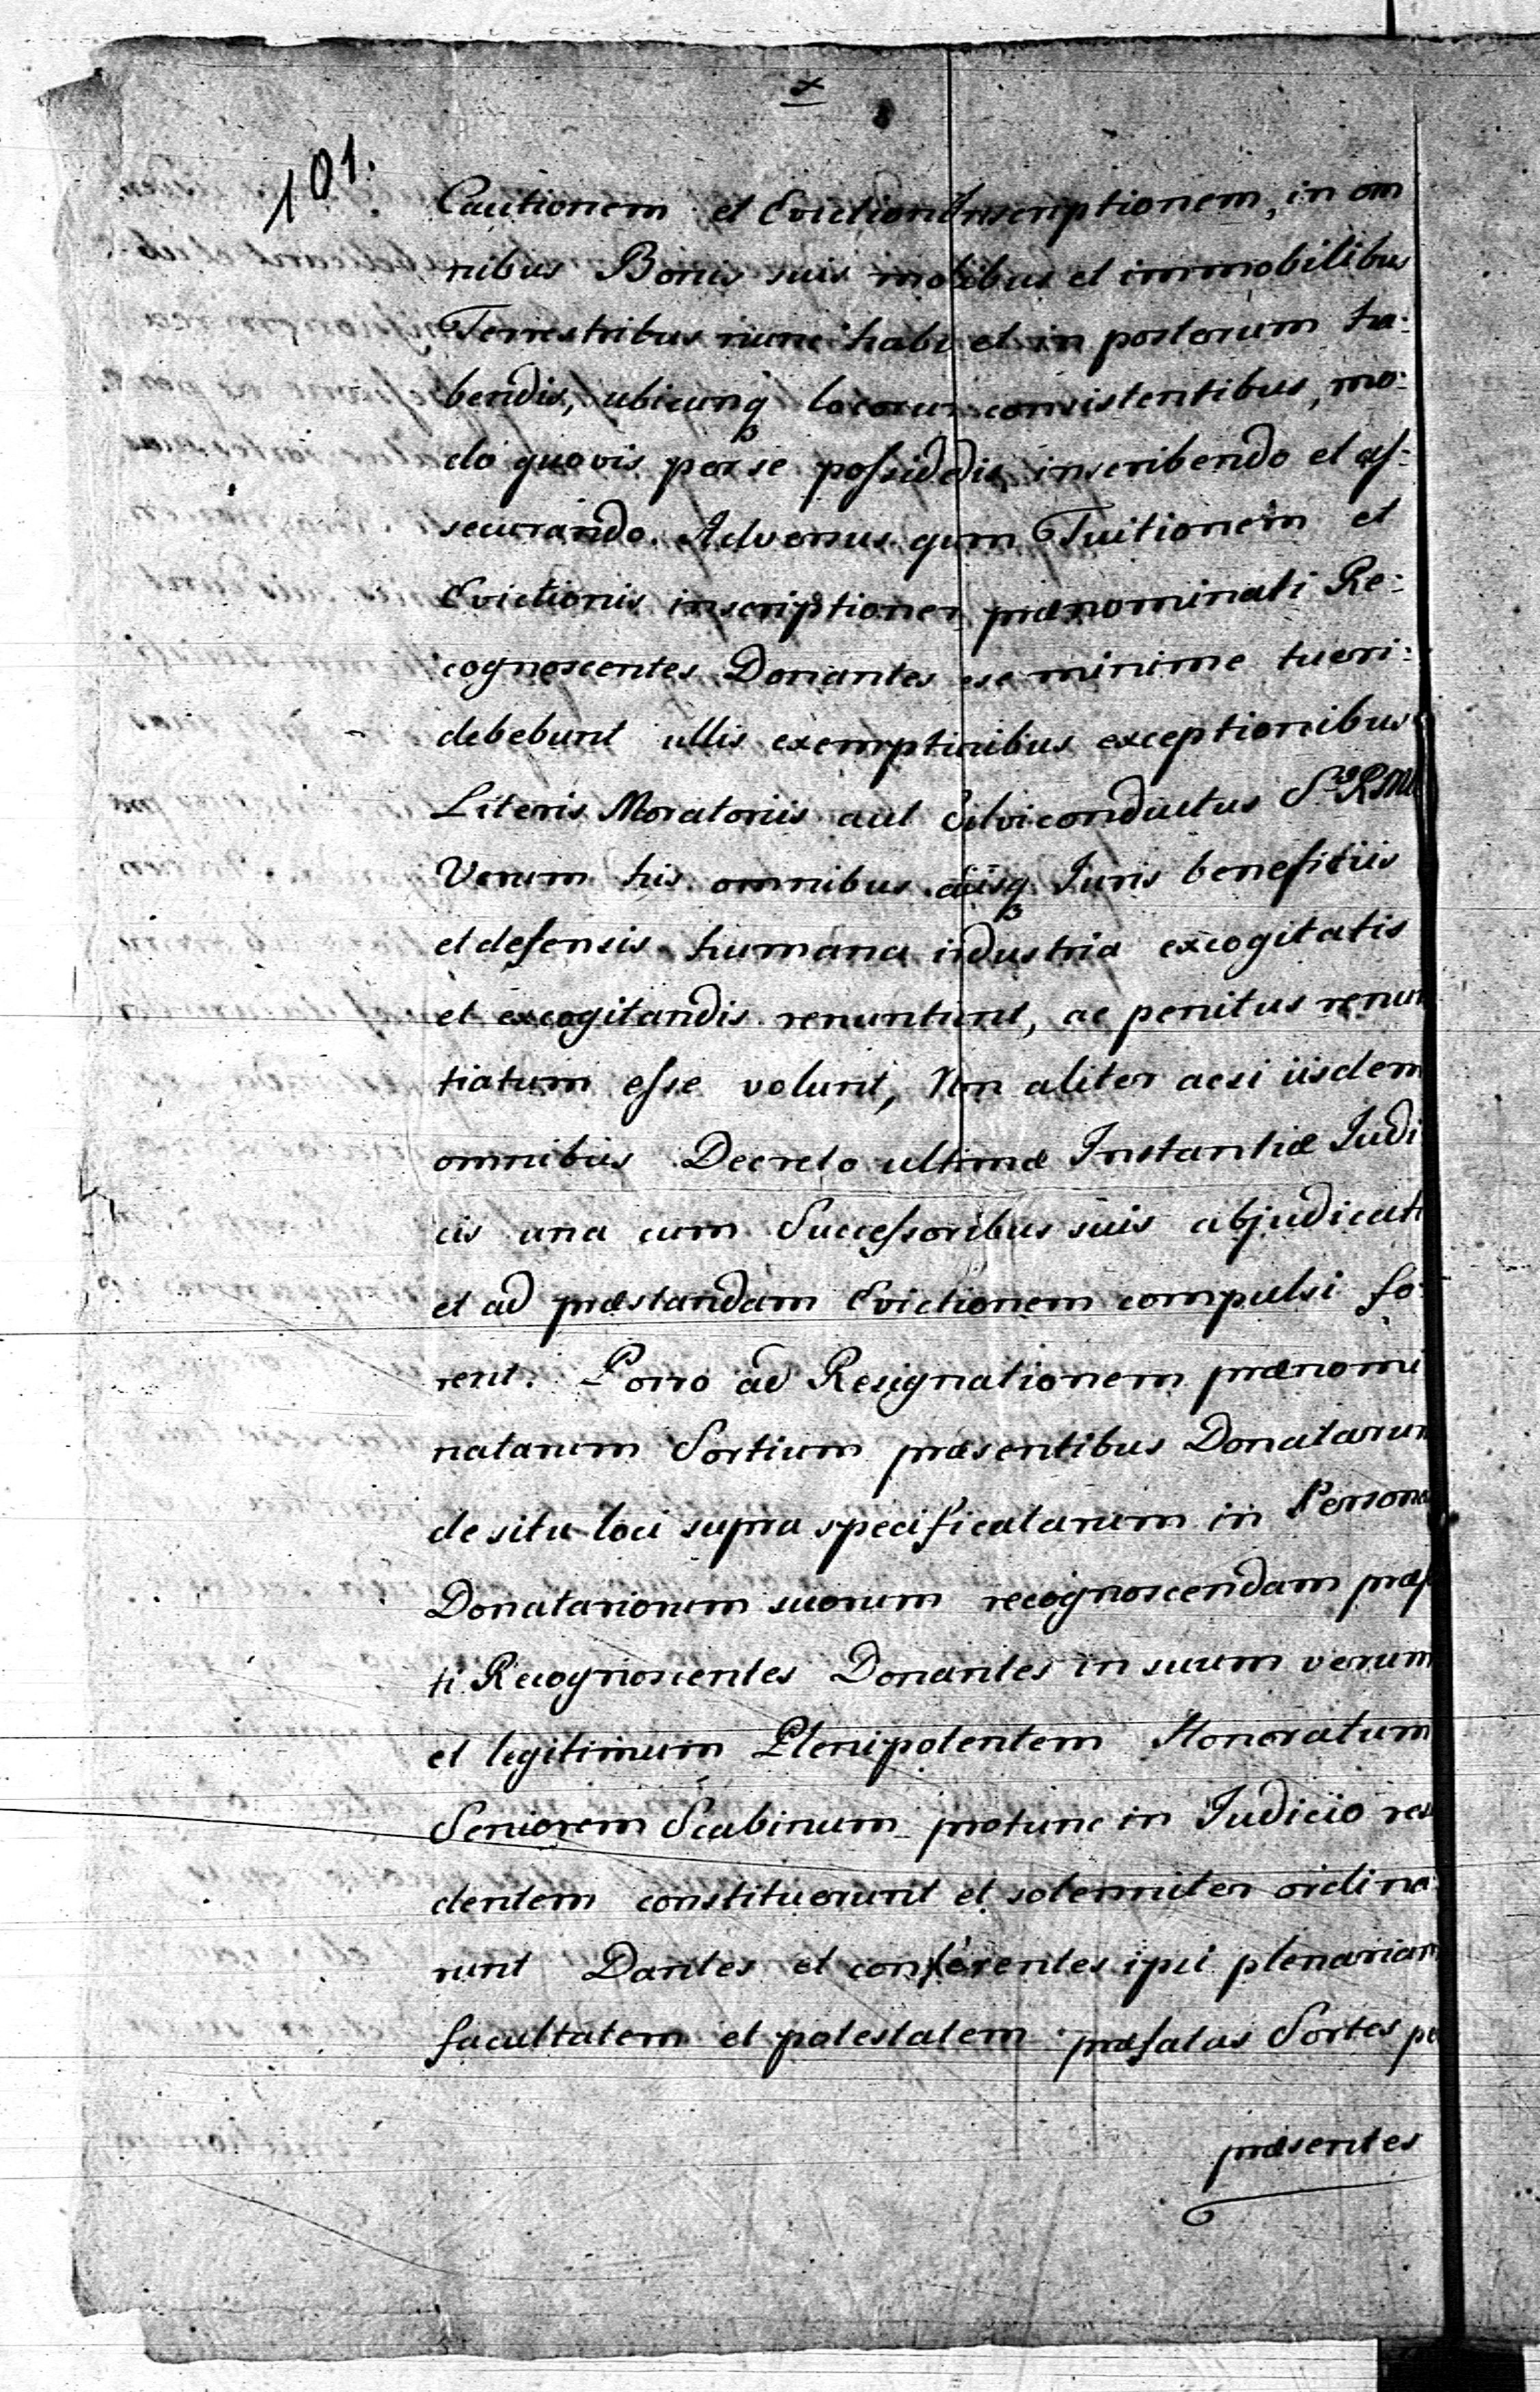 101.
Cautionem et Eviction Inscriptionem, in om
nibus Bonis suis mobibus et immobilibus
Terrestribus nunc habi et in posterum ha:
bendis, ubicunq3 locorum consistentibus, mo:
do quovis per se possiddis inscribendo et as:
securando. Adversus qum Tuitionem et
Evictionis inscriptionem prænominati Re:
cognoscentes Donantes se minime tueri:
debebunt ullis exemptinibus exceptionibus
Literis Moratoriis aut Salviconductus
Verum his omnibus aiisq3 Juris beneficiis
et defensis humana industria excogitatis
et excogitandis renuntiunt, ac penitus renun
tiatum esse volunt, Non aliter acsi iisdem
omnibus Decreto ultimæ Instantiæ Judi
cis una cum Successoribus suis abjudicati
et ad præstandam Evictionem compulsi fo:
rent. Porro ad Resignationem prænomi
natarum Sortium præsentibus Donatarum
de situ loci supra specificatarum in Persona
Donatariorum suorum recognoscendam præf
ti Recognoscentes Donantes in suum verum
et legitimum Plenipotentem Honoratum
Seniorem Scabinum protunc in Judicio resi
dentem constituerunt et solemniter ordina
runt Dantes et conferentes ipsi plenariam
facultatem et potestatem præfatas Sortes pe
præsentes